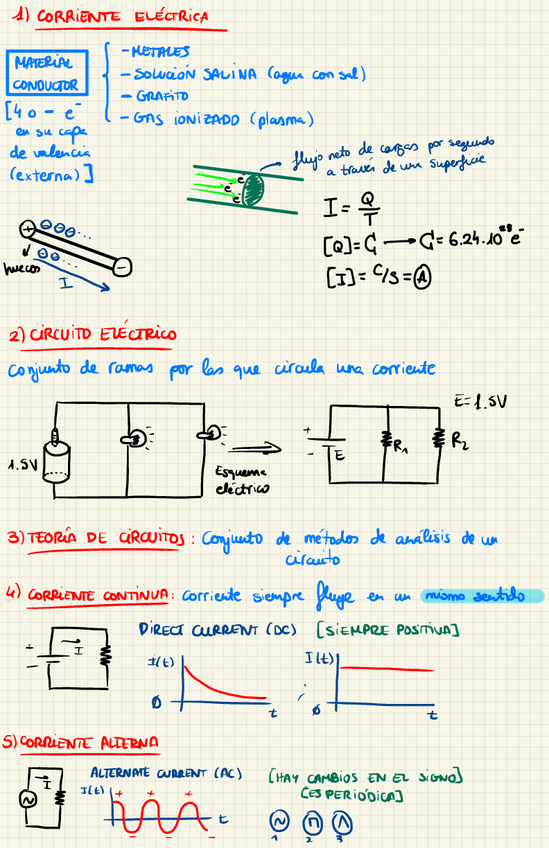 1) CORRIENTE ELÉCTRICA
MATERIAL
CONDUCTOR
- METALES
- SOLUCIÓN SALINA (agua con sal)
- GRAFITO
- GAS IONIZADO (plasma)
[4 o - e⁻
en su capa
de valencia
(externa)]
flujo neto de cargas por segundo
a través de una superficie
e⁻
e⁻
e⁻
I = Q/T
[Q] = C → C = 6.24·10²³ e⁻
[I] = C/S = A
+
huecos
I
-
2) CIRCUITO ELÉCTRICO
Conjunto de ramas por las que circula una corriente
1.5V
Esquema
eléctrico
+
-
E
R₁
R₂
E = 1.5V
3) TEORÍA DE CIRCUITOS: Conjunto de métodos de análisis de un
circuito
4) CORRIENTE CONTINUA: corriente siempre fluye en un mismo sentido
DIRECT CURRENT (DC) [SIEMPRE POSITIVA]
+
-
I
I(t)
0
t
;
I(t)
0
t
5) CORRIENTE ALTERNA
ALTERNATE CURRENT (AC) [HAY CAMBIOS EN EL SIGNO]
[ES PERIÓDICA]
I
I(t)
+ + +
- - -
t
1 2 3